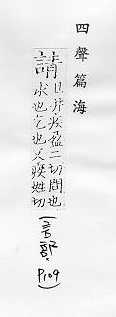 四聲篇海
請
且井疾盈二切問也
求也乞也又疾姓切
(言部, P109)